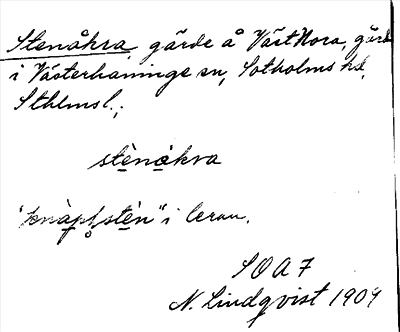 Stenåkra, gärde å Väst Nora, gård
i Västerhaninge sn, Sotholms hd,
Sthlmsl.;
stènákra
"knàpstèn" i leran.
SOA 7
N. Lindqvist 1909